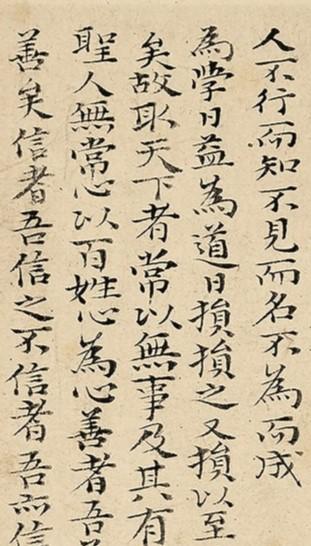 人不行而知不見而名不為而成
為学日益為道日損損之又損以至
矣故取天下者常以無事及其有
聖人無常心以百姓心為心善者吾
善矣信者吾信之不信者吾亦信